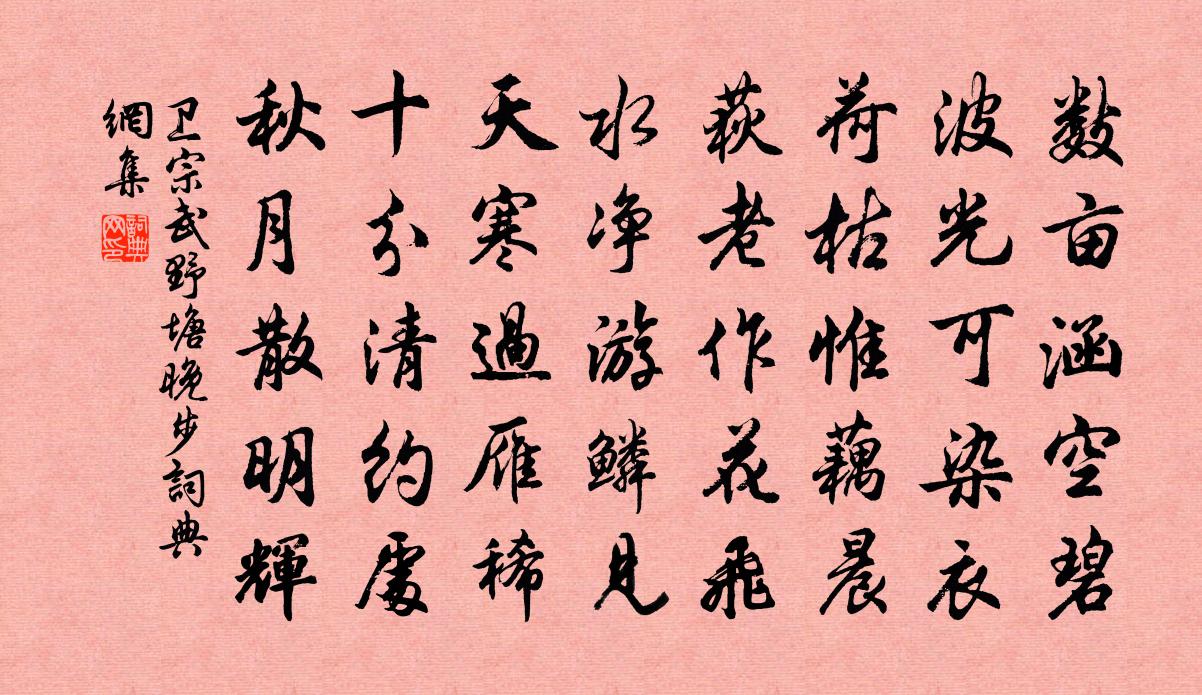 数亩涵空碧
波光可染衣
荷枯惟藕晨
荻老作花飛
水净游鳞见
天寒過雁稀
十分清約處
秋月散明輝
卫宗武野塘晚步詞典
網集
詞典
网印